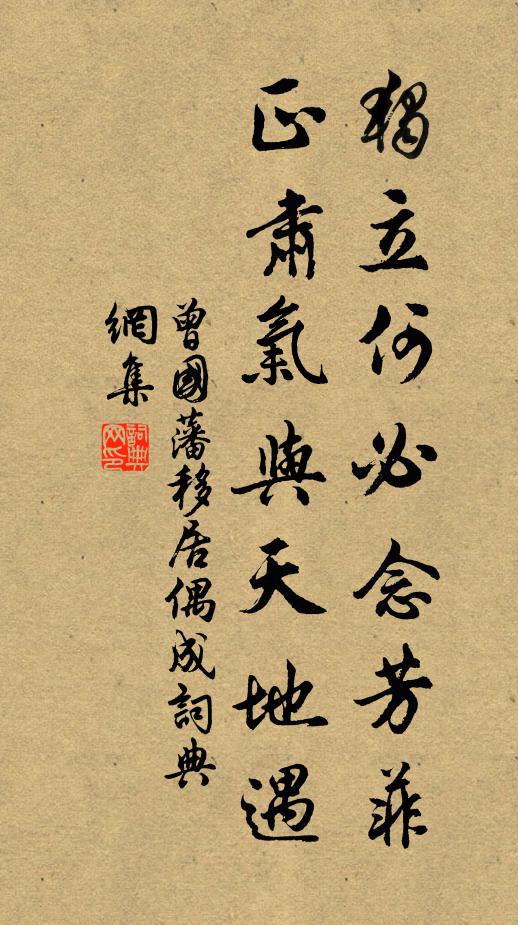 獨立何必念芳菲
正肅氣與天地遇
曾國藩移居偶成詞典
網集
詞典網印